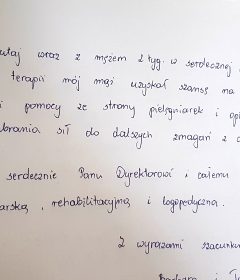 utaj wraz z mężem 2 tyg. w serdecznej
terapii mój mąż uzyskał szansę na
i pomocy ze strony pielęgniarek i opi
brania sił do dalszych zmagań z c
serdecznie Panu Dyrektorowi, całemu
arską, rehabilitacyjną i logopedyczną.
Z wyrazami szacunku
Barbara i